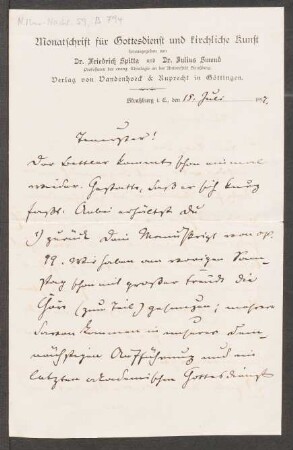 Monatschrift für Gottesdienst und kirchliche Kunst
herausgegeben von
Dr. Friedrich Spitta und Dr. Julius Smend
Professoren der evang. Theologie an der Universität Straßburg.
Verlag von Vandenhoeck & Ruprecht in Göttingen.
Straßburg i. E., den 18. Juli 1897.
Teuerster!
Der Bettler kommt schon einmal
wieder. Gestatte, daß er sich kurz
faßt. Anbei erhältst du
1) zurück dein Manuskript von op.
99. Wir haben am vorigen Sams-
tag schon mit großer Freude die
Chöre (zum Teil) gesungen; mehrere
davon kommen in unserer dem-
nächstigen Aufführung und im
letzten akademischen Gottesdienst